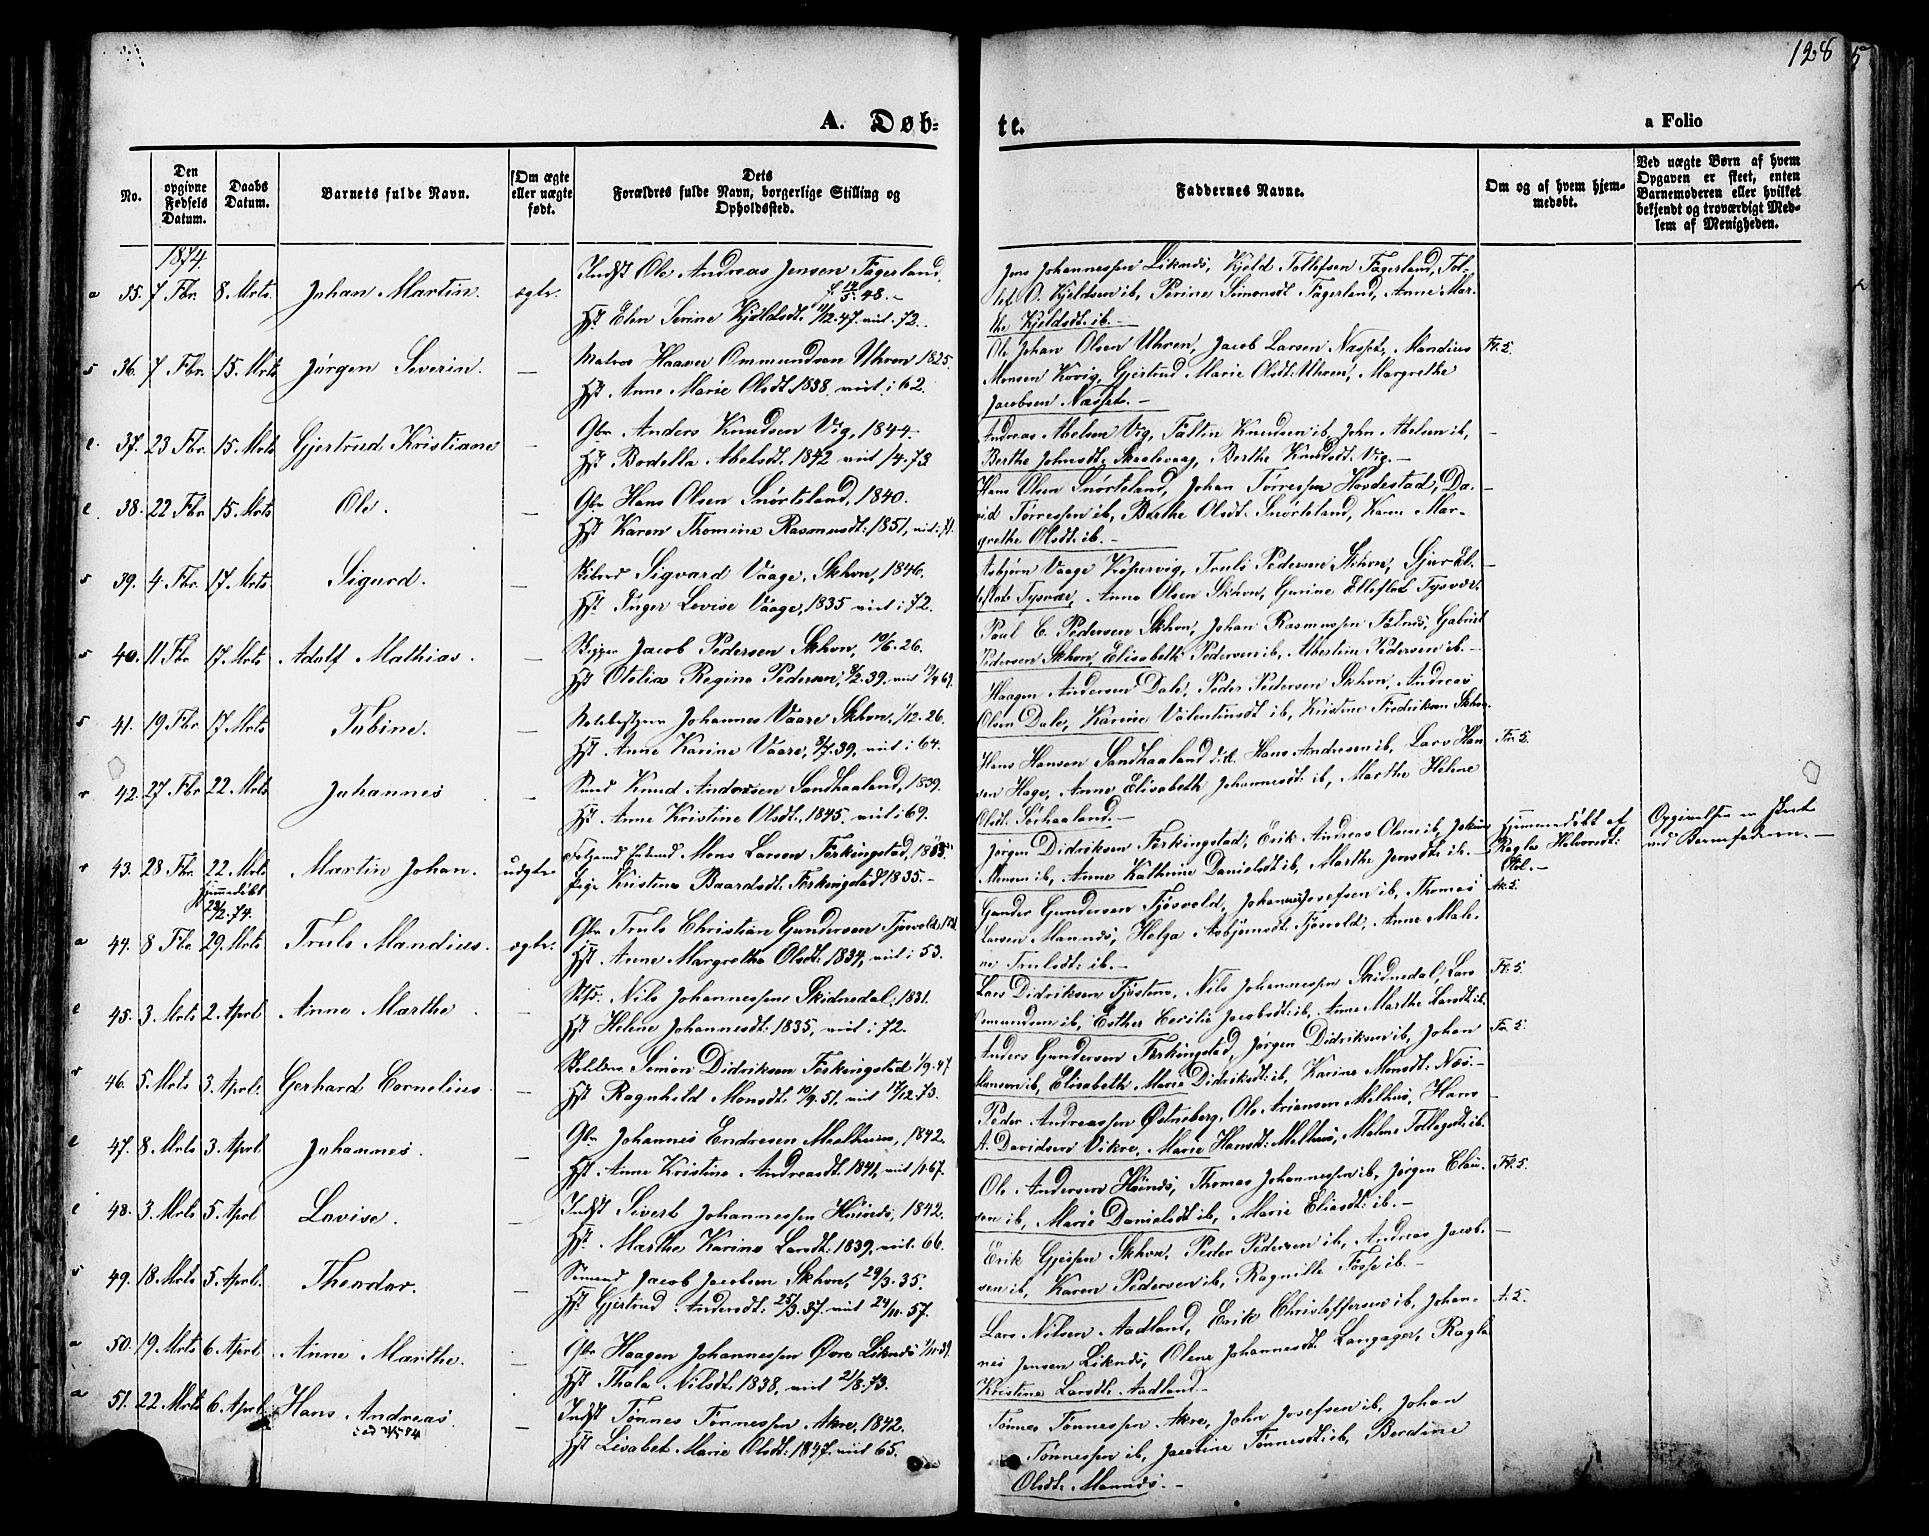 128
5
A. Døb-
te.
a Folio
No.
Den opgivne Fødsels Datum.
Daabs Datum.
Barnets fulde Navn.
Om ægte eller uægte født.
Dets Forældres fulde Navn, borgerlige Stilling og Opholdssted.
Faddernes Navne.
Om og af hvem hjemmedøbt.
Ved uægte Børn af hvem Opgaven er skeet, enten Barnemoderen eller hvilket bekjendt og troværdigt Medlem af Menigheden.
1874.
a 35. 7 Fbr. 8. Mrts. Johan Martin. ægte. Indst Ole Andreas Jensen Fagerland.
Hst Elen Serine Kjeldsdt. 11/12.47. viet i 72.
Jens Johannessen Liknes, Kjeld Tollefsen Fagerland, Tol-
lef O. Kjeldsen ib, Perine Simonsdt Fagerland, Anne Mar-
the Kjeldsdt. ib.-
s 36. 7 Fbr. 15. Mrts Jørgen Severin. - Matros Haaver Ommundsen Uhren 1825.
Hst Anne Marie Olsdt. 1838 viet i 62.
Ole Johan Olsen Uhren, Jacob Larsen Næsset, Mandius
Monsen Kovig, Gjertrud Marie Olsdt. Uhren, Margrethe
Jacobsen Næsset.-
e. 37. 23 Fbr. 15. Mrts Gjertrud Kristiane - Gbr Anders Knudsen Vig, 1844.
Hst Bodella Abelsdt. 1842 viet 14.73
Andreas Abelsen Vig, Faltin Knudsen ib, John Abelsen ib,
Berthe Johnsdt. Skaalevaag, Berthe Knudsdt. Vig.-
e. 38. 22 Fbr. 15. Mrts Ole. - Gbr Hans Olsen Snørteland, 1840.
Hst Karen Thomine Rasmusdt. 1851,
Hans Olsen Snørteland, Johan Torressen Hovdestad, Da-
vid Torressen ib, Berthe Olsdt. Snørteland, Karen Mar-
grethe Olsdt. ib.-
s 39. 4. Fbr. 17. Mrts Sigurd. - Sigvard Vaage, Skhvn, 1846.
Hst Inger Lovise Vaage, 1835 viet i 72.
Asbjørn Vaage Kopervig, Truls Pedersen Skhvn,
Tysvær, Anna Olsen Skhvn, Gurine Elleflot Tysvær.
s 40. 11 Fbr 17. Mrts Adolf Mathias. - Bygger Jacob Pedersen Skhvn, 10/6.26.
Hst Otelia Regine Pedersen,
Paul C. Pedersen Skhvn, Johan Rasmussen Falnes, Gabriel
Pedersen Skhvn, Elisabeth Pedersen ib, Albertine Pedersen ib.-
s 41. 19 Fbr 17. Mrts Tobine. - Johannes Vaare Skhvn, 1/12.26.
Hst Anne Karine Vaare, 8/7.39, viet i 64.
Haagen Andersen Dale, Peder Pedersen Skhvn, Andreas
Olsen Dale, Karine Valentinsdt ib, Kristine Fredriksen Skhvn.
r 42. 27 Fbr 22. Mrts Johannes - Knud Andersen Sandhaaland, 1839.
Hst Anne Kristine Olsdt. 1845. viet i 69.
Hans Hansen Sandhaaland, Hans Andresen ib, Lars Han-
sen Hage, Anne Elisabeth Johannesdt. ib, Marthe Helene
Olsdt. Sørhaaland.-
r 43. 28 Fbr. 22. Mrts Martin Johan. uægte Mons Larsen Ferkingstad,
Hjemmedøbt 28/2.74. Pige Kristine Baardsdt. Ferkingstad 1835.-
Jørgen Didriksen Ferkingstad, Erik Andreas Olsen ib,
Monsen ib, Anne Kathrine Danielsdt ib, Marthe Jensdt. ib.-
Hjemmedøbt af Ragla Helvorsdt. Opgivelsen er skeet
ved Barnefaderen.-
a 44. 8 Fbr. 29. Mrts Truls Mandius. ægte. Gbr Truls Christian Gundersen Fjosvold,
Hst Anne Margrethe Olsdt. 1834, viet i 53.
Gunder Gundersen Fjosvold, Johannes Josefsen ib, Thomas
Larsen Mannes, Helga Asbjørnsdt. Fjosvold, Anne Mal-
ne Trulsdt. ib.-
e 45. 3. Mrts 2. April Anne Marthe. - Nils Johannessen Skidnedal, 1831.
Hst Helene Johannesdt. 1835, viet i 72.
Lars Didriksen Fjosteno, Nils Johannessen Skidnedal, Lars
Osmundsen ib, Esther Cecilie Jacobsdt. ib, Anne Marthe Larsdt. ib.
r 46. 5. Mrts 3. April. Gerhard Cornelius. - Simon Didriksen Ferkingstad 1/9.47.
Hst Ragnhild Monsdt. 10/9.51, viet 17/12.73.
Anders Gundersen Ferkingstad, Jørgen Didriksen ib, Johan
Monsen ib, Elisabeth Marie Didriksdt. ib, Karine Monsdt. Næs.-
e 47. 8. Mrts 3. April Johannes. - Gbr Johannes Endresen Mælheim, 1842.
Hst Anne Kristine Andreasdt. 1841,
Peder Andreassen Østneberg, Ole Ariansen Melhus, Hans
A. Davidsen Vikre, Marie Hansdt. Melhus, Malene Tollagsdt. ib.
e 48. 3. Mrts 5. April Lovise. - Indst Sivert Johannessen Høines, 1842.
Hst Marthe Karine Larsdt. 1839, viet. 66.
Ole Andersen Høines, Thomas Johannessen ib, Jørgen Clau-
sen ib, Marie Danielsdt ib, Marie Eliasdt: ib.-
s 49. 18. Mrts 5. April. Theodor. - Sømand Jacob Jacobsen Skhvn, 29/3.35.
Hst Gjertrud Andersdt. 25/3.37. viet 24/11.57.
Erik Gjersen Skhvn, Peder Pedersen ib, Andreas Jacob-
sen ib, Karen Pedersen ib, Ragnille Fosse ib.-
a 50. 19. Mrts 6. April. Anne Marthe. - Gbr Haagen Johannessen Øvre Liknes
Hst Thala Nilsdt. 1838, viet 21/8.73.
Lars Nilsen Aadland, Erik Christoffersen ib, Johan-
nes Jensen Liknes, Olene Johannesdt. Langager, Ragla
Kristine Larsdt. Aadland.-
a 51. 22. Mrts 6. April. Hans Andreas. - Indst Tønnes Tønnessen Akre, 1842.
Hst Lisabet Marie Olsdt. 1847. viet 65.
Tønnes Tønnessen Akre, John Josefsen ib, Johan
Tønnessen ib, Jacobine Tønnesdt. ib, Berdine
Olsdt. Mannes.-